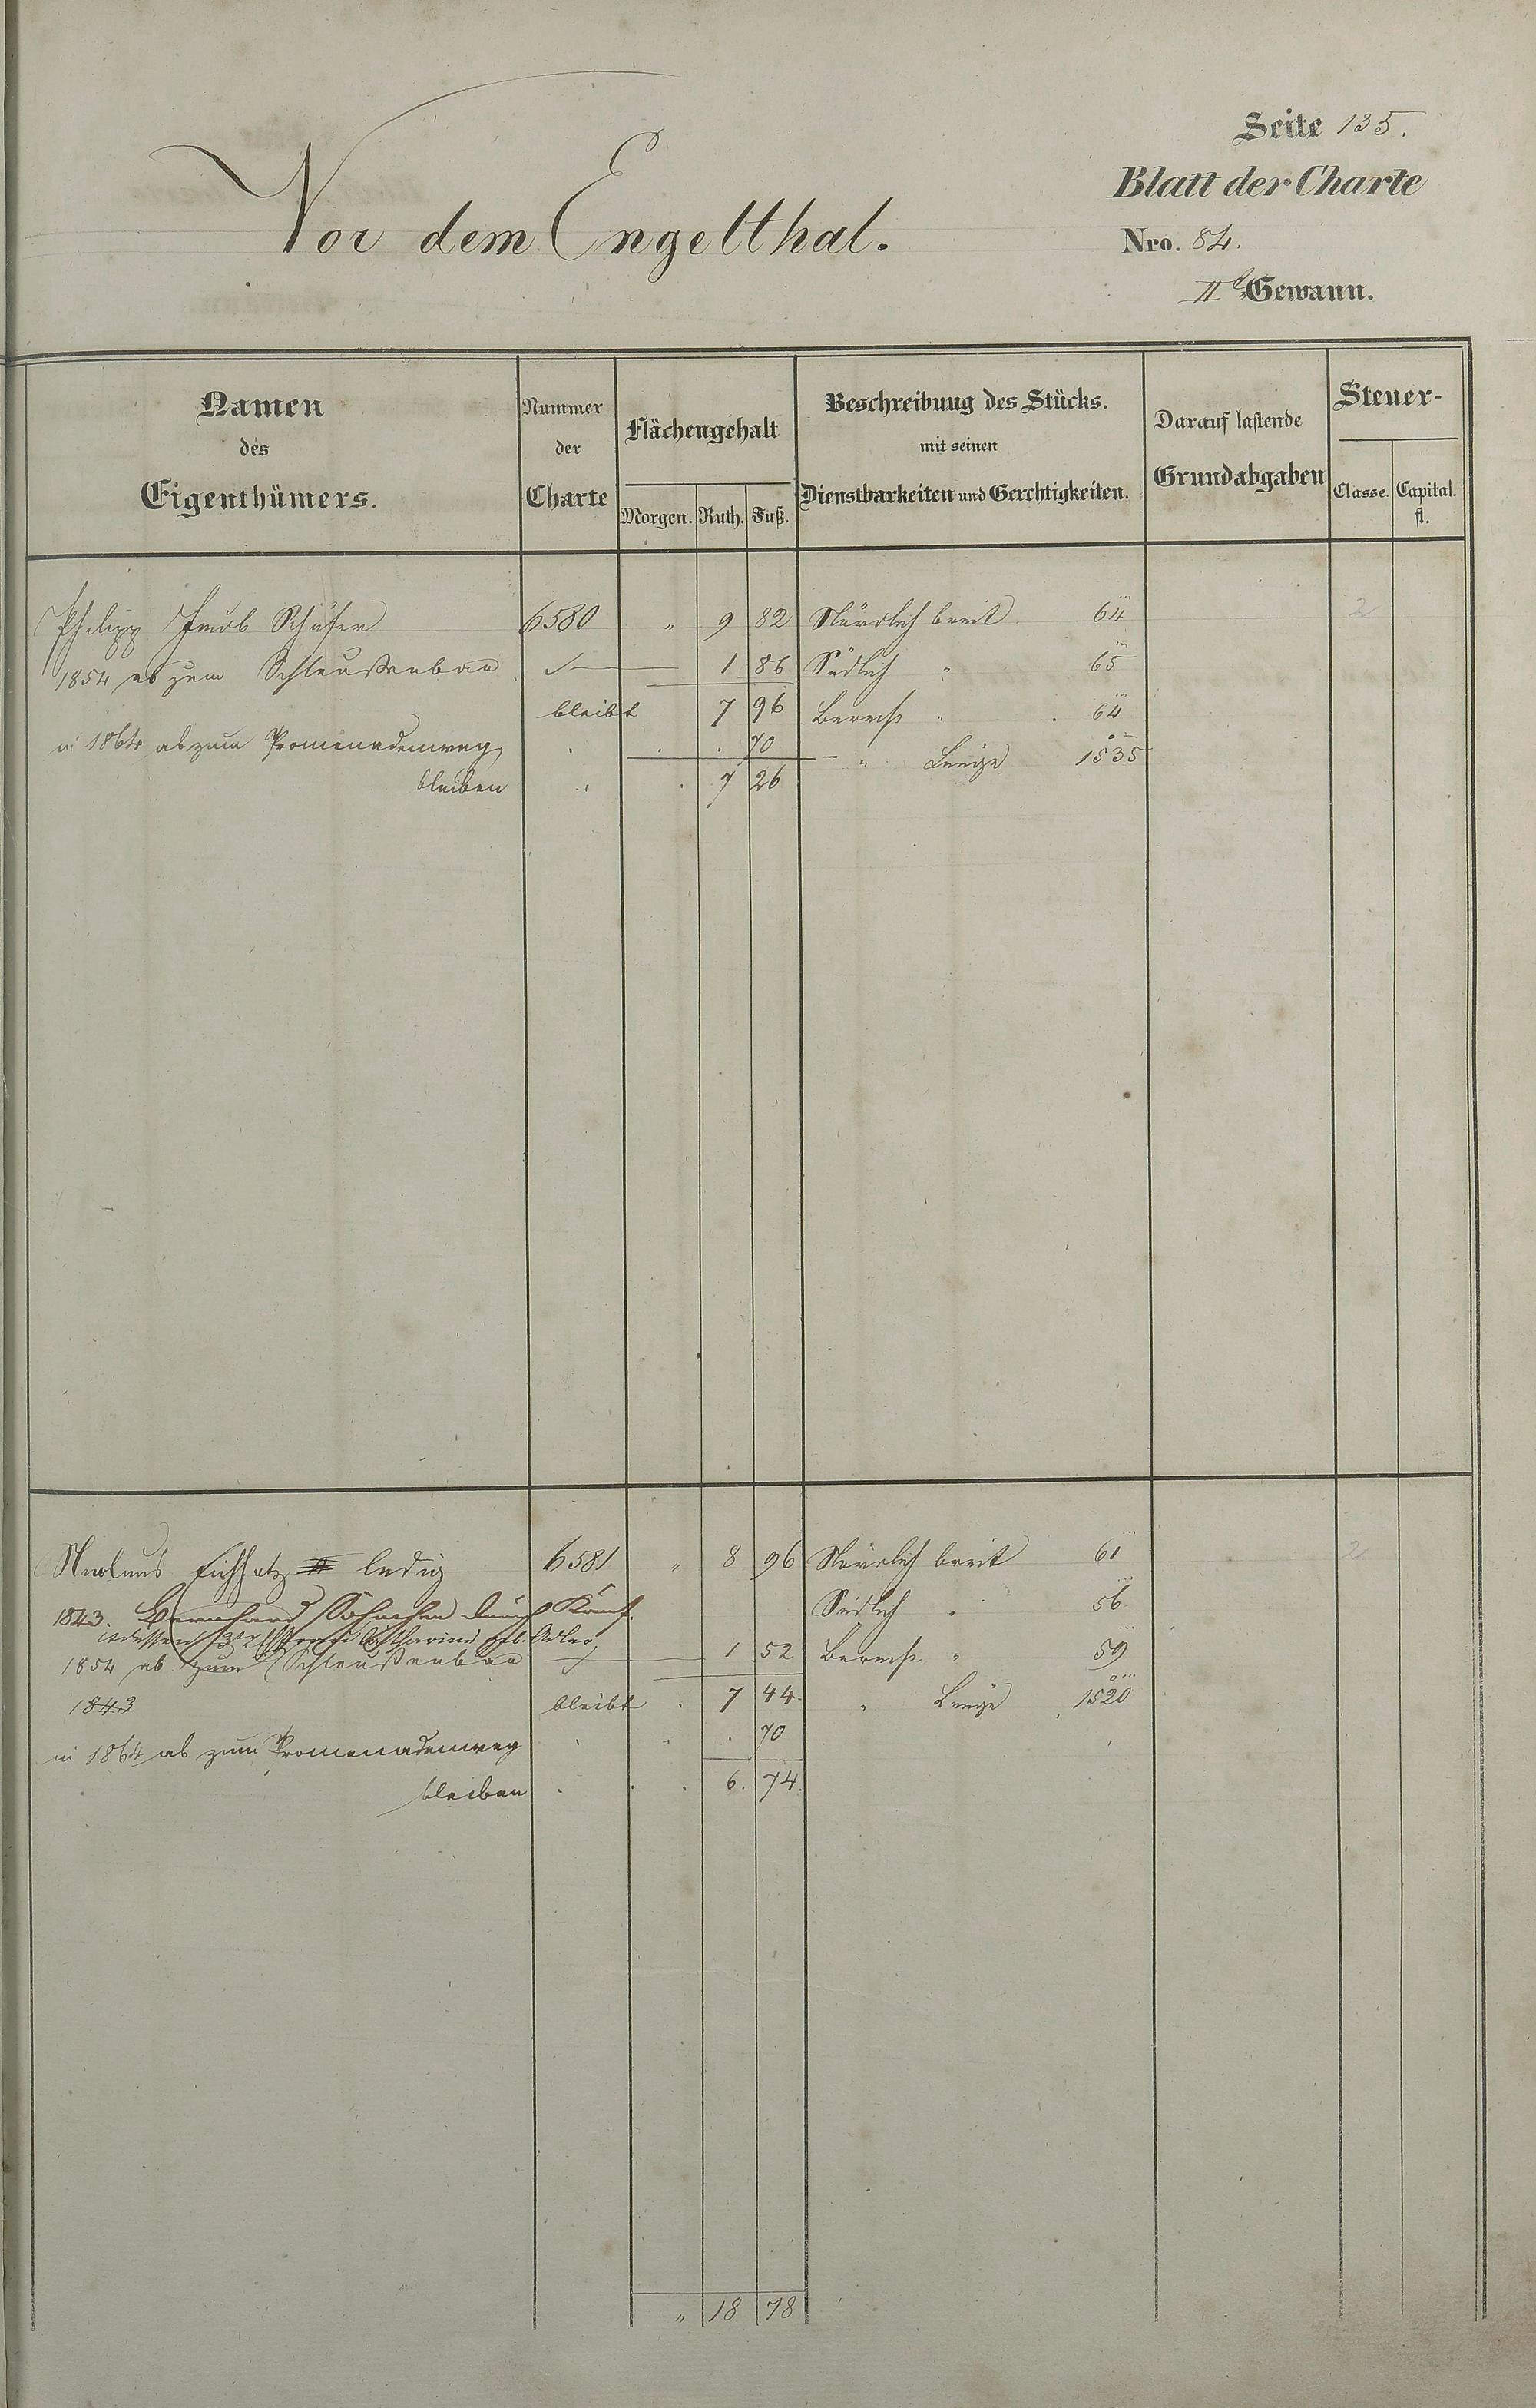 Seite 135.
Blatt der Charte
Vor dem Engelthal.
Nro. 84.
II Gewann.
Namen des Eigenthümers.
Nummer der Charte
Flächengehalt
Morgen. Ruth. Fuß.
Beschreibung des Stücks.
mit seinen
Dienstbarkeiten und Gerechtigkeiten.
Darauf lastende
Grundabgaben
Steuer-
Classe. Capital. fl.
Philipp Jacob Schäfer 6580 " 9 82 Nördlich breit 64 2
1854 ab zum Schleußenbau 1 86 Südlich " 65
bleibt 7 96 Berech " 64
in 1864 ab zum Promenadenweg 70 " Länge 1535
bleiben 7 26
Nicolaus ledig 6581 " 8 96 Nördlich breit 61 2
1843. Bernhard durch Kauf. Südlich " 56
Catharina geb. Adler.
1854 ab zum Schleußenbau 1 52 Berech " 59
1843 bleibt 7 44 " Länge 1520
in 1864 ab zum Promenadenweg 70
bleiben 6. 74.
" 18 78